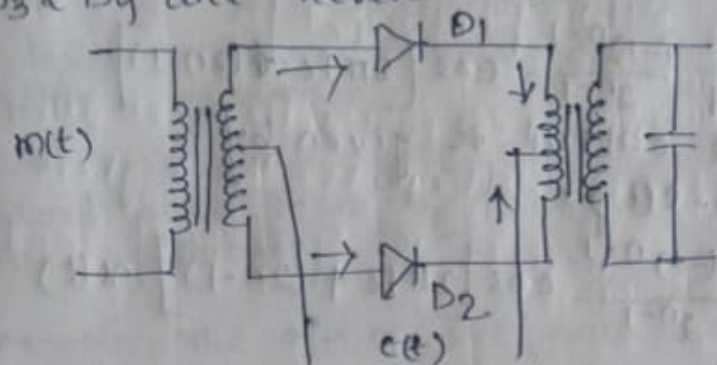 D1
m(t)
D2
c(t)